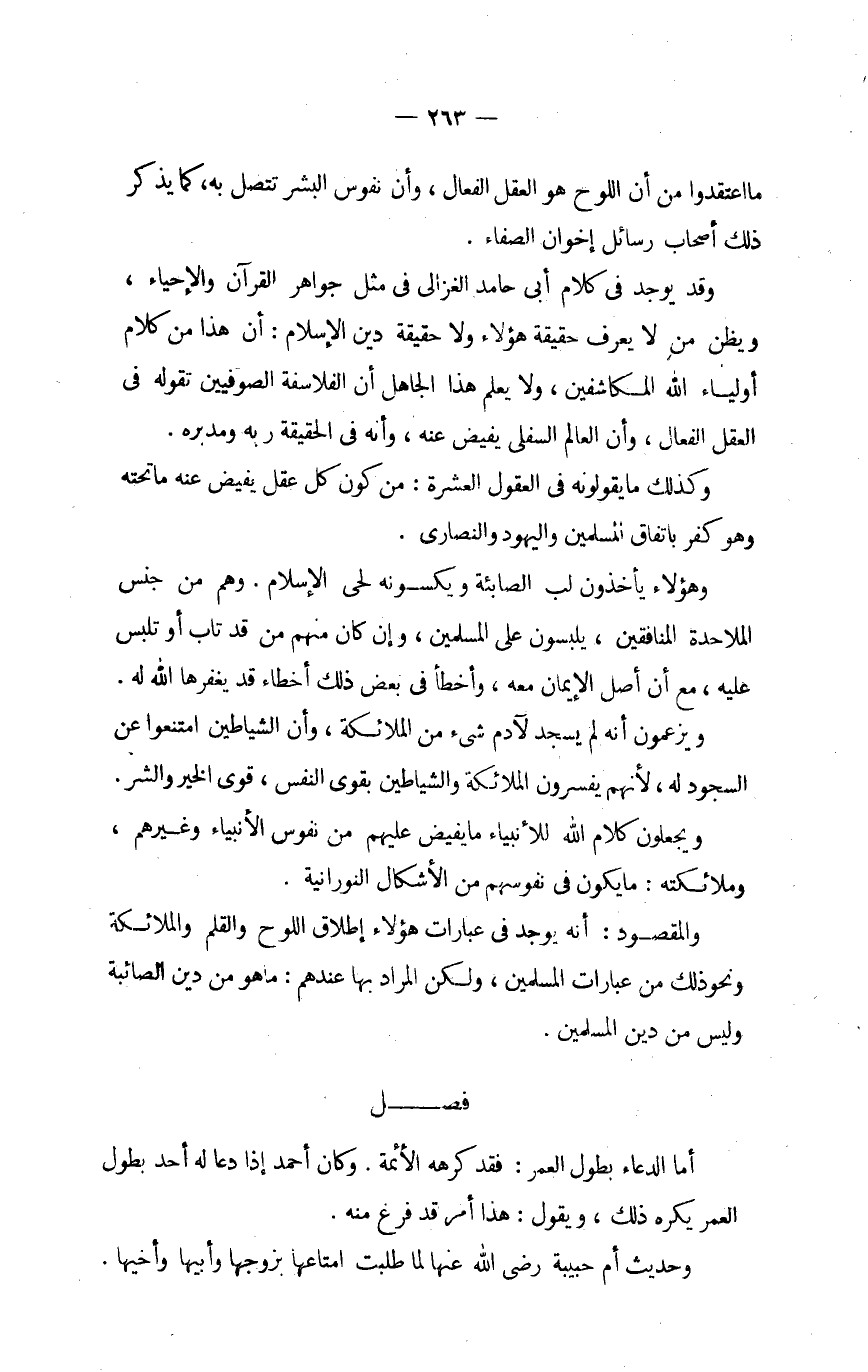 — ٢٦٣ —
مااعتقدوا من أن اللوح هو العقل الفعال ، وأن نفوس البشر تتصل به، كما يذكر
ذلك أصحاب رسائل إخوان الصفاء .
وقد يوجد فى كلام أبى حامد الغزالى فى مثل جواهر القرآن والإحياء ،
ويظن من لا يعرف حقيقة هؤلاء ولا حقيقة دين الإسلام : أن هذا من كلام
أوليـاء الله المـكاشفين ، ولا يعلم هذا الجاهل أن الفلاسفة الصوفيين تقوله فى
العقل الفعال ، وأن العالم السفلى يفيض عنه ، وأنه فى الحقيقة ربه ومدبره .
وكذلك مايقولونه فى العقول العشرة : من كون كل عقل يفيض عنه ماتحته
وهو كفر باتفاق المسلمين واليهود والنصارى .
وهؤلاء يأخذون لب الصابئة ويكسـونه لحى الإسلام . وهم من جنس
الملاحدة المنافقين ، يلبسون على المسلمين ، وإن كان منهم من قد تاب أو تلبس
عليه ، مع أن أصل الإيمان معه ، وأخطأ فى بعض ذلك أخطاء قد يغفرها الله له .
ويزعمون أنه لم يسجد لآدم شىء من الملائـكة ، وأن الشياطين امتنعوا عن
السجود له ، لأنهم يفسرون الملائكة والشياطين بقوى النفس ، قوى الخير والشر .
ويجعلون كلام الله للأنبياء مايفيض عليهم من نفوس الأنبياء وغـيرهم ،
وملائـكته : مايكون فى نفوسهم من الأشكال النورانية .
والمقصـود : أنه يوجد فى عبارات هؤلاء إطلاق اللوح والقلم والملائـكة
ونحوذلك من عبارات المسلمين ، ولـكن المراد بها عندهم : ماهو من دين الصائبة
وليس من دين المسلمين .
فصـــل
أما الدعاء بطول العمر : فقد كرهه الأئمة . وكان أحمد إذا دعا له أحد بطول
العمر يكره ذلك ، ويقول : هذا أمر قد فرغ منه .
وحديث أم حبيبة رضى الله عنها لما طلبت امتاعها بزوجها وأبيها وأخيها .